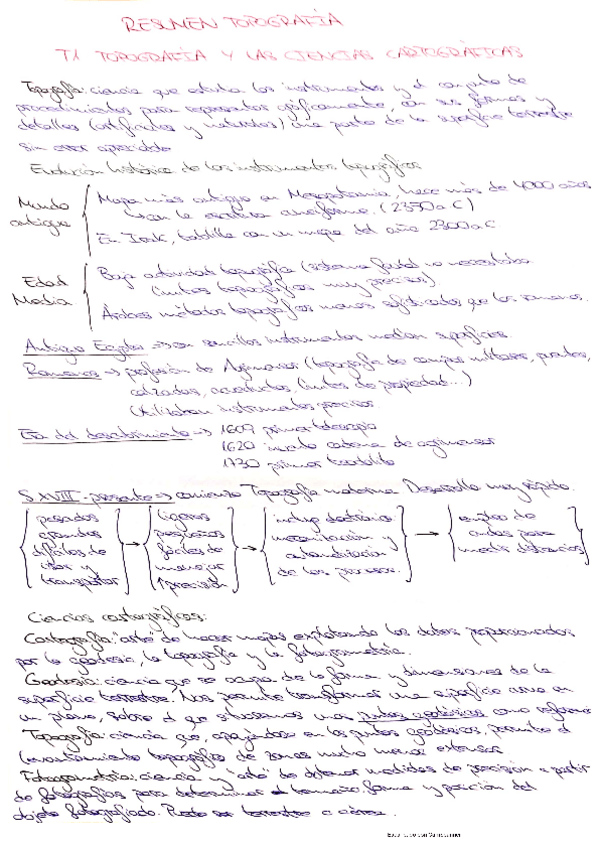 RESUMEN TOPOGRAFÍA
T.1 TOPOGRAFÍA Y LAS CIENCIAS CARTOGRÁFICAS
Topografía: ciencia que estudia los instrumentos y el conjunto de
procedimientos para representar gráficamente, con sus formas y
detalles (artificiales y naturales) una parte de la superficie terrestre
sin error apreciable
Evolución histórica de los instrumentos topográficos
Mundo antiguo
Mapa más antiguo en Mesopotamia, hace más de 4000 años
con la escritura cuneiforme. (2350 a C)
En Irak, tablilla con un mapa del año 2300 a C
Edad Media
Baja actividad topográfica (sistema feudal no necesitaba
límites topográficos muy precisos)
Árabes métodos topográficos menos sofisticados que los romanos.
Antiguo Egipto → con sencillos instrumentos medían superficies
Romanos → profesión de Agrimensor (topografía de campos militares, puentes,
calzadas, acueductos, límites de propiedad...)
Utilizaban instrumentos precisos
Era del descubrimiento → 1609 primer telescopio
1620 invento cadena de agrimensor
1730 primer teodolito
S XVIII - presente → comienzo Topografía moderna. Desarrollo muy rápido.
pesados grandes difíciles de usar y transportar → ligeros pequeños fáciles de manejar ↑ precisión → electrónica mecanización y automatización de los procesos. → empleo de ondas para medir distancias
Ciencias cartográficas:
Cartografía: "arte" de hacer mapas explotando los datos proporcionados
por la geodesia, la topografía y la fotogrametría.
Geodesia: ciencia que se ocupa de la forma y dimensiones de la
superficie terrestre. Nos permite transformar una superficie curva en
un plano, sobre el que situaremos unos puntos geodésicos como referencia
Topografía: ciencia que, apoyándose en los puntos geodésicos, permite el
levantamiento topográfico de zonas mucho menos extensas
Fotogrametría: ciencia y "arte" de obtener medidas de precisión a partir
de fotografías para determinar el tamaño, forma y posición del
objeto fotografiado. Puede ser terrestre o aérea.